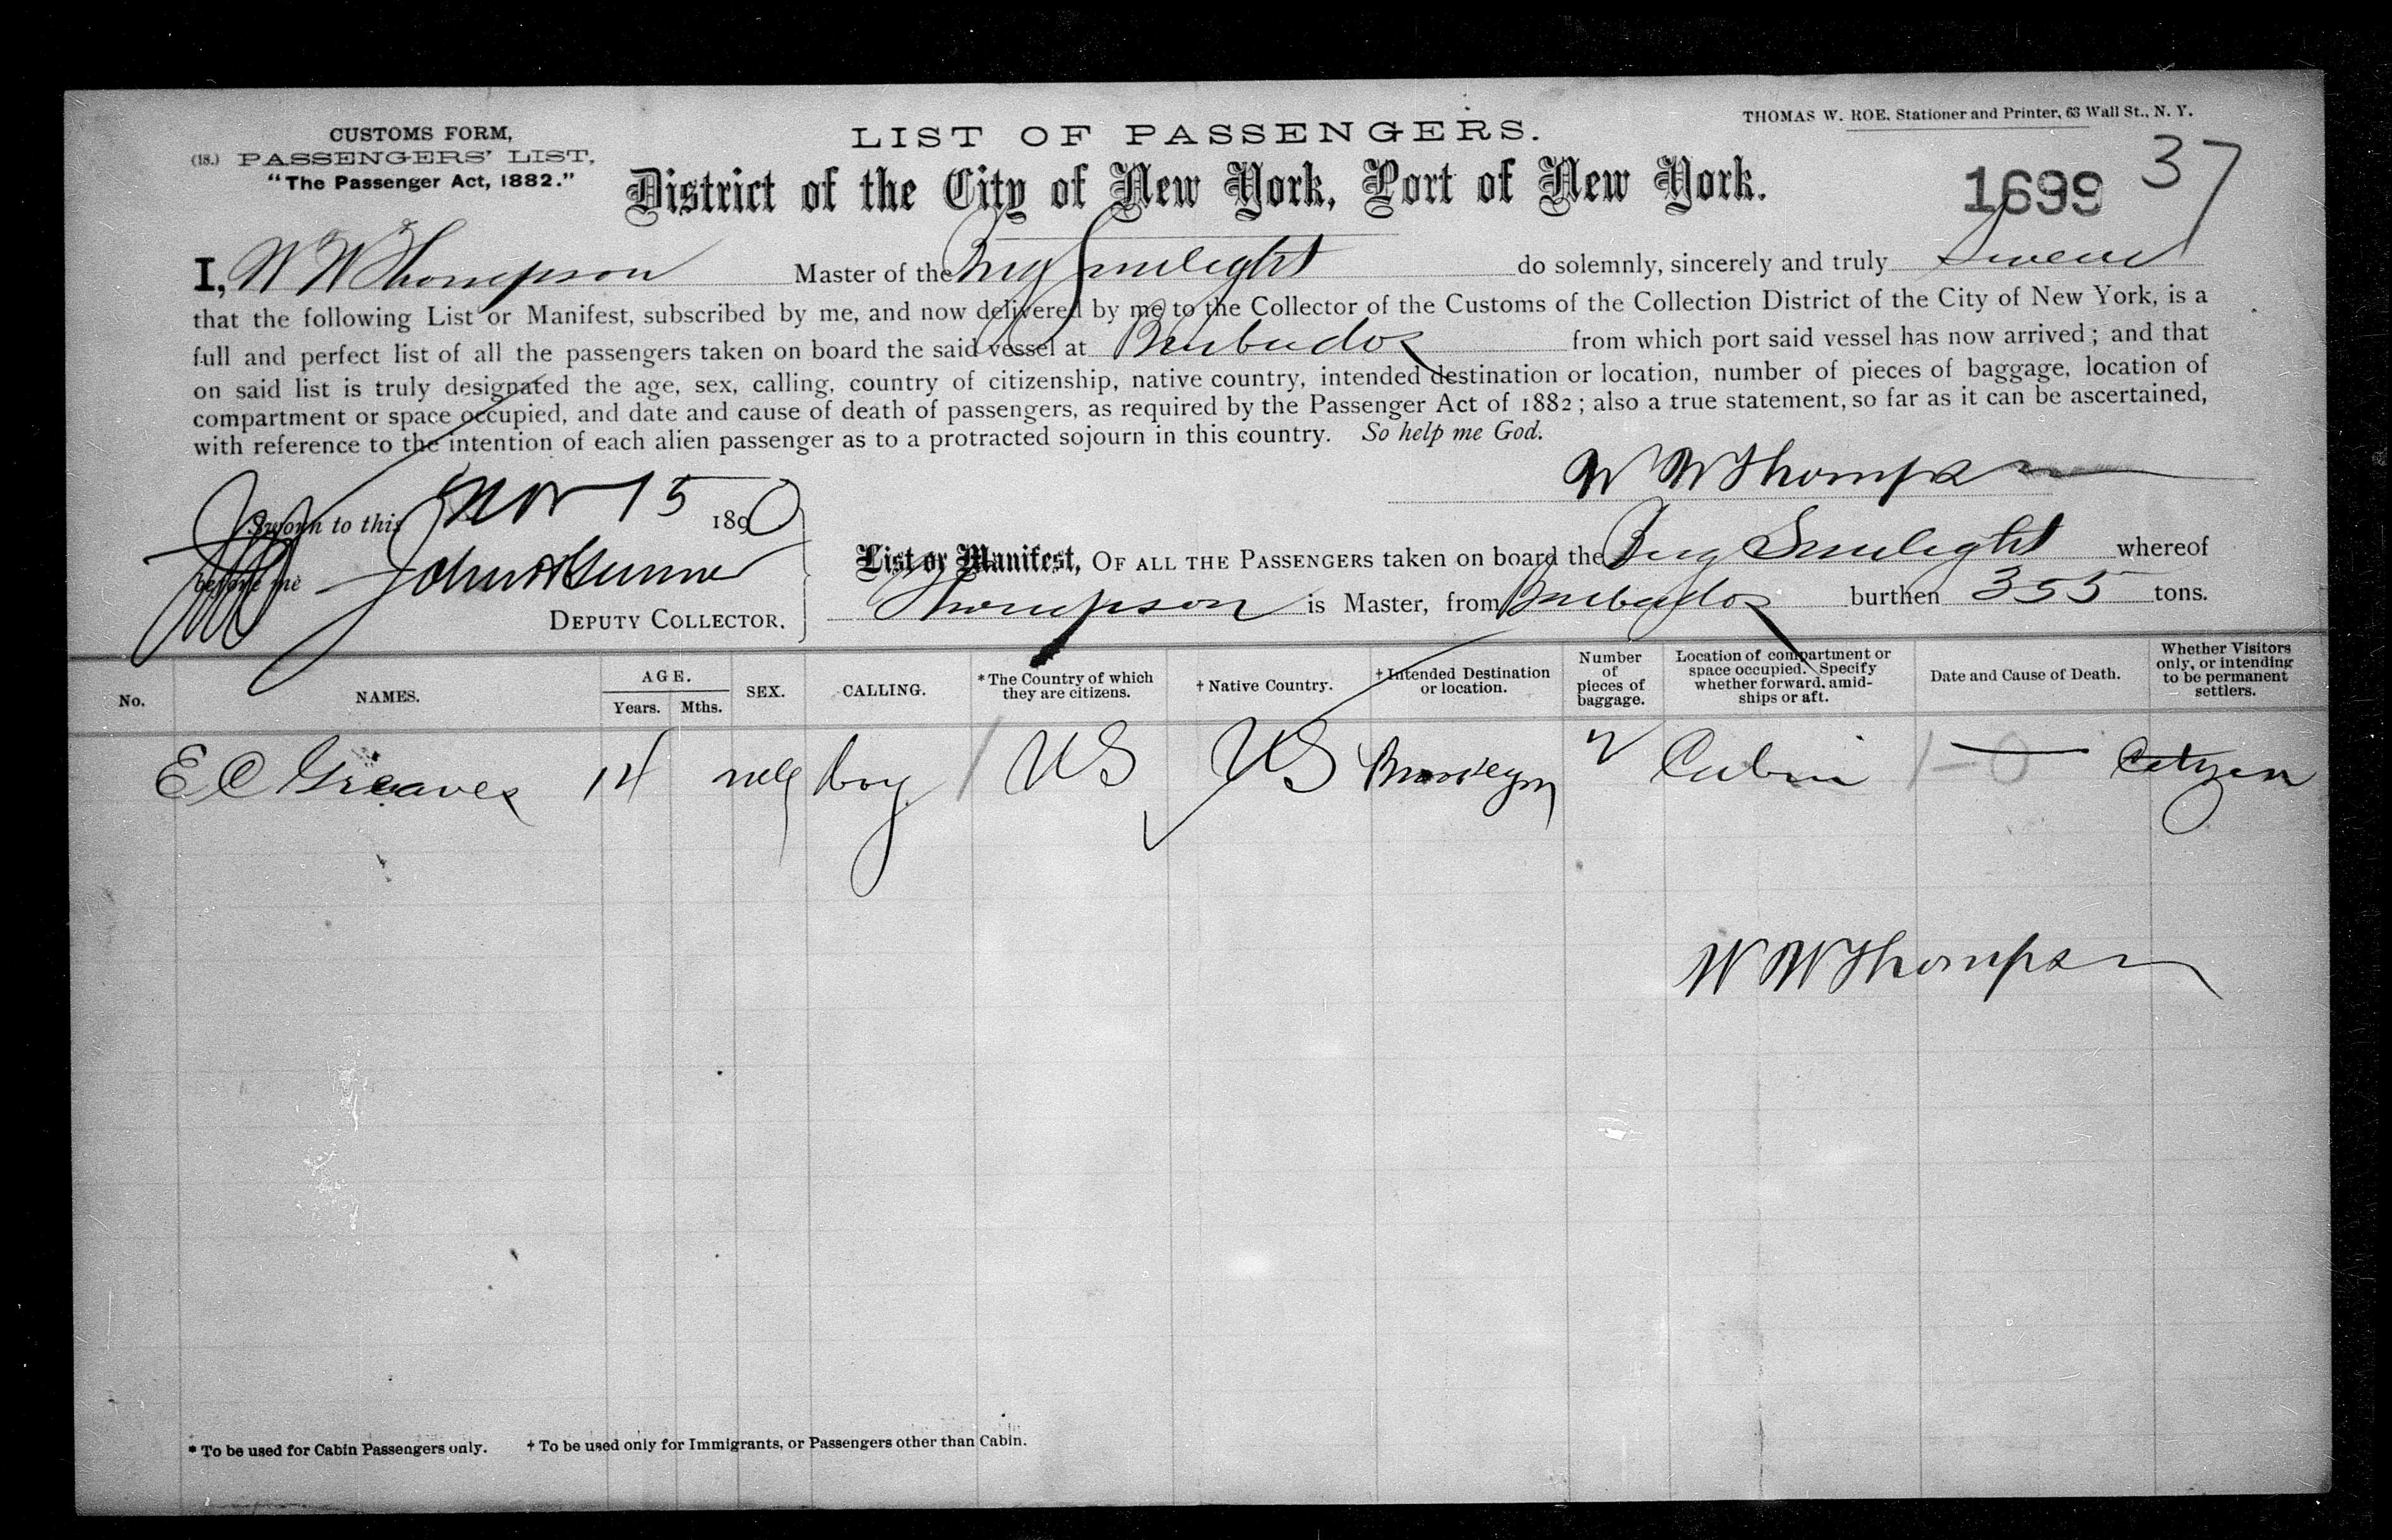 CUSTOMS FORM,
(18.) PASSENGERS' LIST,
"The Passenger Act, 1882."
LIST OF PASSENGERS.
THOMAS W. ROE, Stationer and Printer, 63 Wall St., N. Y.
District of the City of New York, Port of New York.
1699 37
I, W W Thompson Master of the Brig Sunlight do solemnly, sincerely and truly Swear
that the following List or Manifest, subscribed by me, and now delivered by me to the Collector of the Customs of the Collection District of the City of New York, is a
full and perfect list of all the passengers taken on board the said vessel at Barbados from which port said vessel has now arrived; and that
on said list is truly designated the age, sex, calling, country of citizenship, native country, intended destination or location, number of pieces of baggage, location of
compartment or space occupied, and date and cause of death of passengers, as required by the Passenger Act of 1882; also a true statement, so far as it can be ascertained,
with reference to the intention of each alien passenger as to a protracted sojourn in this country. So help me God.
W W Thompson
Sworn to this Nov 15 1890
before me
DEPUTY COLLECTOR.
List or Manifest, OF ALL THE PASSENGERS taken on board the Brig Sunlight whereof
Thompson is Master, from Barbados burthen 355 tons.
No.
NAMES.
AGE.
Years. Mths.
SEX.
CALLING.
*The Country of which
they are citizens.
† Native Country.
† Intended Destination
or location.
Number
of
pieces of
baggage.
Location of compartment or
space occupied. Specify
whether forward, amid-
ships or aft.
Date and Cause of Death.
Whether Visitors
only, or intending
to be permanent
settlers.
E C Greaves 14 boy US US Brooklyn 2 Cabin 1-0 Citizen
W W Thompson
* To be used for Cabin Passengers only. † To be used only for Immigrants, or Passengers other than Cabin.